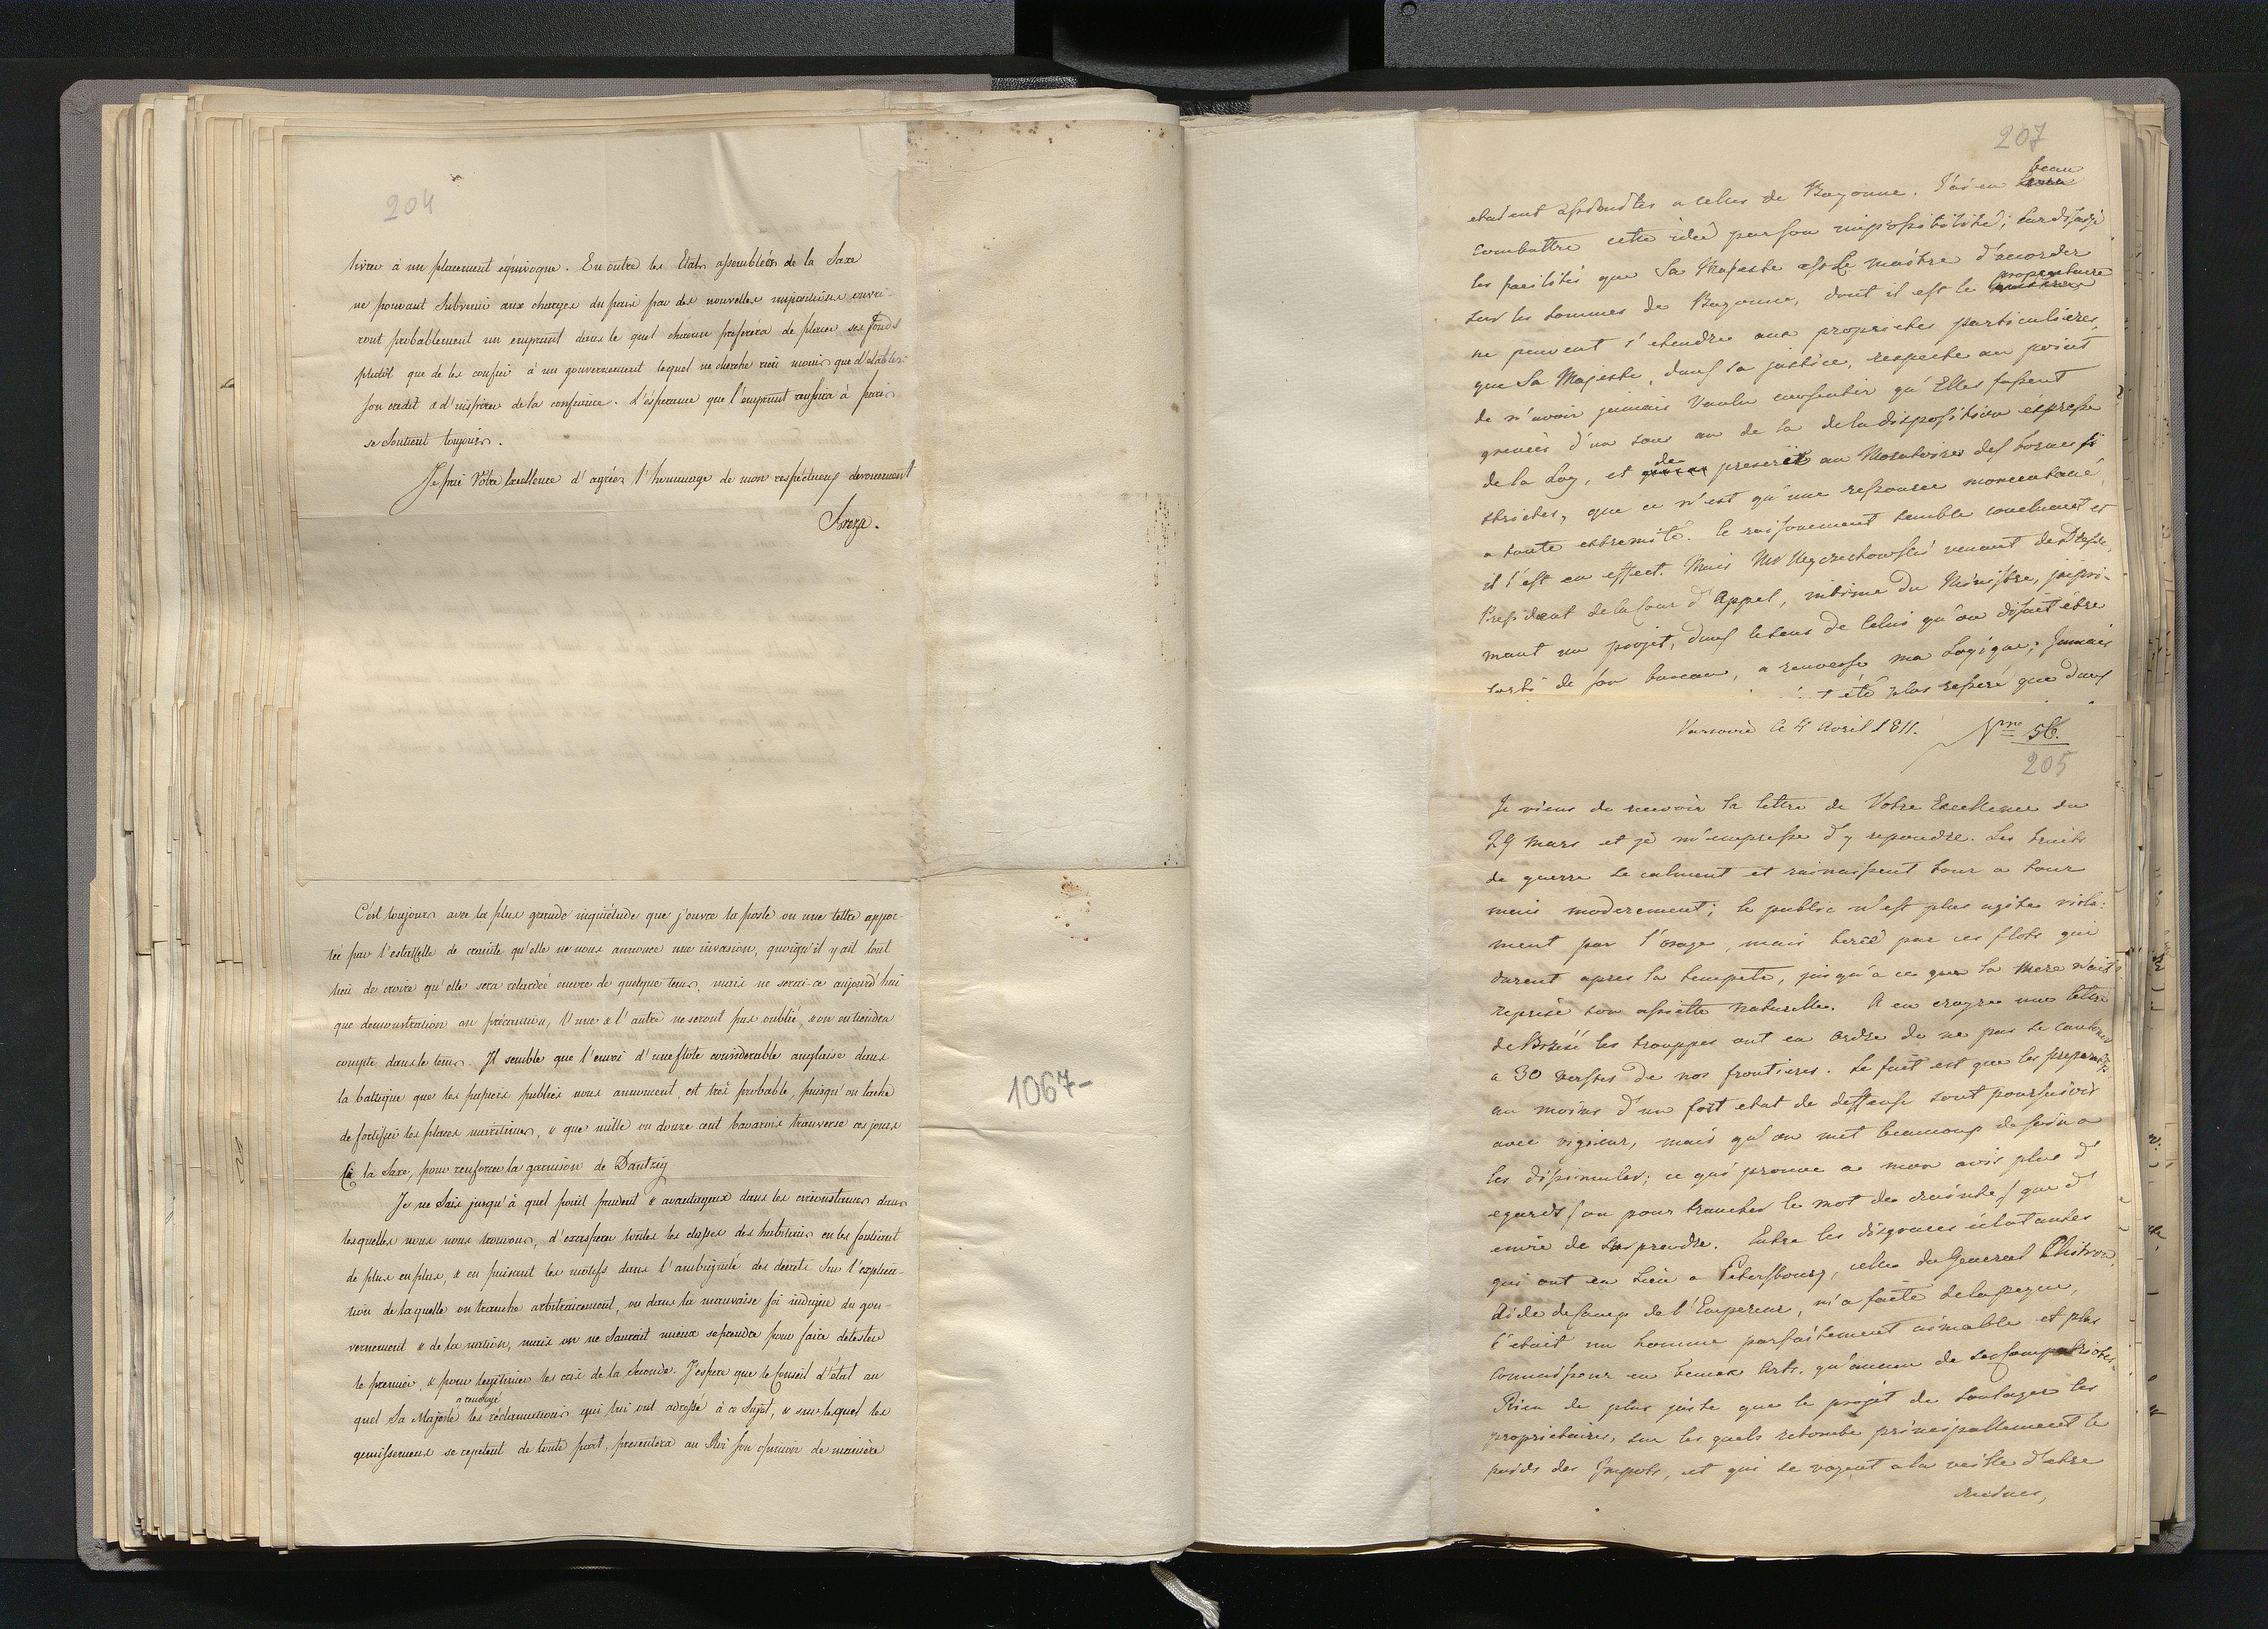 204
livrer à un placement équivoque. En outre les Etats assemblées de la Saxe
ne pouvant subvenir aux charges du pais par des nouvelles impositions ouvri-
ront probablement un emprunt dans le quel chacun preferéra de placer ses fonds
plutôt que de les confier à un gouvernement lequel ne cherche rien moins que d'etablir
son credit & d'inspirer de la confiance. L'ésperance que l'emprunt reussira à paris
se soutient toujours.
Je prie Vôtre Excellence d'agréer l'hommage de mon respectueux devouement
Breza.
C'ést toujours avec la plus grande inquiétude que j'ouvre la poste ou une lettre appor-
tée par l'estaffette de crainte qu'elle ne nous annonce une invasion, quoiqu'il y ait tout
lieu de croire qu'elle sera retardée encore de quelque tems, mais ne serai-ce aujourd'hui
que demonstration ou précaution, l'une & l'autre ne seront pas oublié, & on en tiendra
compte dans le tems. Il semble que l'envoi d'une flote considerable anglaise dans
la baltique que les papiers publics nous annoncent, est très probable, puisqu'on tache
de fortifier les places maritimes, & que mille ou douze cent bavarois traverse ces jours
ci la Saxe, pour renforcer la garnison de Dantzig
Je ne sais jusqu'à quel point prudent & avantageux dans les circonstances dans
lesquelles nous nous trouvons, d'exasperer toutes les classes des habitans en les
de plus en plus, & en puisant les motifs dans l'ambiguité des decrets sur l'explica-
tion de laquelle on tranche arbitrairement, ou dans la mauvaise foi indigne du gou-
vernement & de la nation, mais on ne saurait mieux se prendre pour faire detester
le premier, & pour legitimer les cris de la seconde. J'espere que le Conseil d'état au
a renvoyé
quel Sa Majesté les réclamations qui lui ont adressé à ce sujet, & sur lequel les
gemissemens se repetent de toute part, presentera au Roi son opinion de manière
1067-
207
beau
etaient assimilés a celles de Bayonne. J'ai eu
combattre cette idée par son impossibilité; car disais je
les facilités que Sa Majesté est le maitre d'accorder
proprietaire
sur les sommes de Bayonne, dont il est le
ne peuvent s'etendre aux proprietes particulieres,
que Sa Majeste, dans sa justice, respecte au point
de n'avoir jamais voulu consentir qu'Elles fussent
grevées d'un sous au de la de la disposition expresse
de
de la Loy, et prescrit au Moratoires des bornes si
strictes, que ce n'est qu'une ressource momentané,
a toute extremité. Ce raisonement semble concluant et
il l'est en effect. Mais Mr Węgrzechowski venant de Dresde,
President de la Cour d'Appel, intime du Ministre, expri-
mant un projet, dans le sens de celui qu'on disait être
sorti de son bureau, a renversé ma Logique; jamais
été plus serré que dans
Varsovie le 4 Avril 1811. Nro 56.
205
Je viens de recevoir la lettre de Votre Excellence du
29 Mars et je m'empresse d'y repondre. Les bruits
de guerre se calment et rainaissent tour a tour
mais moderement; le public n'est plus agité viole:
ment par l'orage, mais bercé par ces flots qui
durent apres la tempete, jusqu'a ce que la mere n'ait
reprise son assiette naturelle. A en croyre une lettre
de Brzesć les trouppes ont eu ordre de ne pas se cantonner
a 30 verstes de nos frontieres. Le fait est que les preparatifs
au moins d'un fort etat de deffense sont poursuivis
avec vigueur, mais qu'on met beaucoup de soin a
les dissimuler; ce qui prouve a mon avis plus d'
egards / ou pour trancher le mot de crainte / que d'
envie de surprendre. Entre les disgraces éclatantes
qui ont eu lieu a Petersbourg, celle du General
Aide de Camp de l'Empereur, m'a faite de la peine,
C'était un homme parfaitement aimable et plus
connaisseur en beaux Arts, qu'aucun de ses Compatriotes.
Rien de plus juste que le projet de soulager les
proprietaires, sur les quels retombe principallement le
poids des Impots, et qui se voyent a la veille d'etre
ruinés,